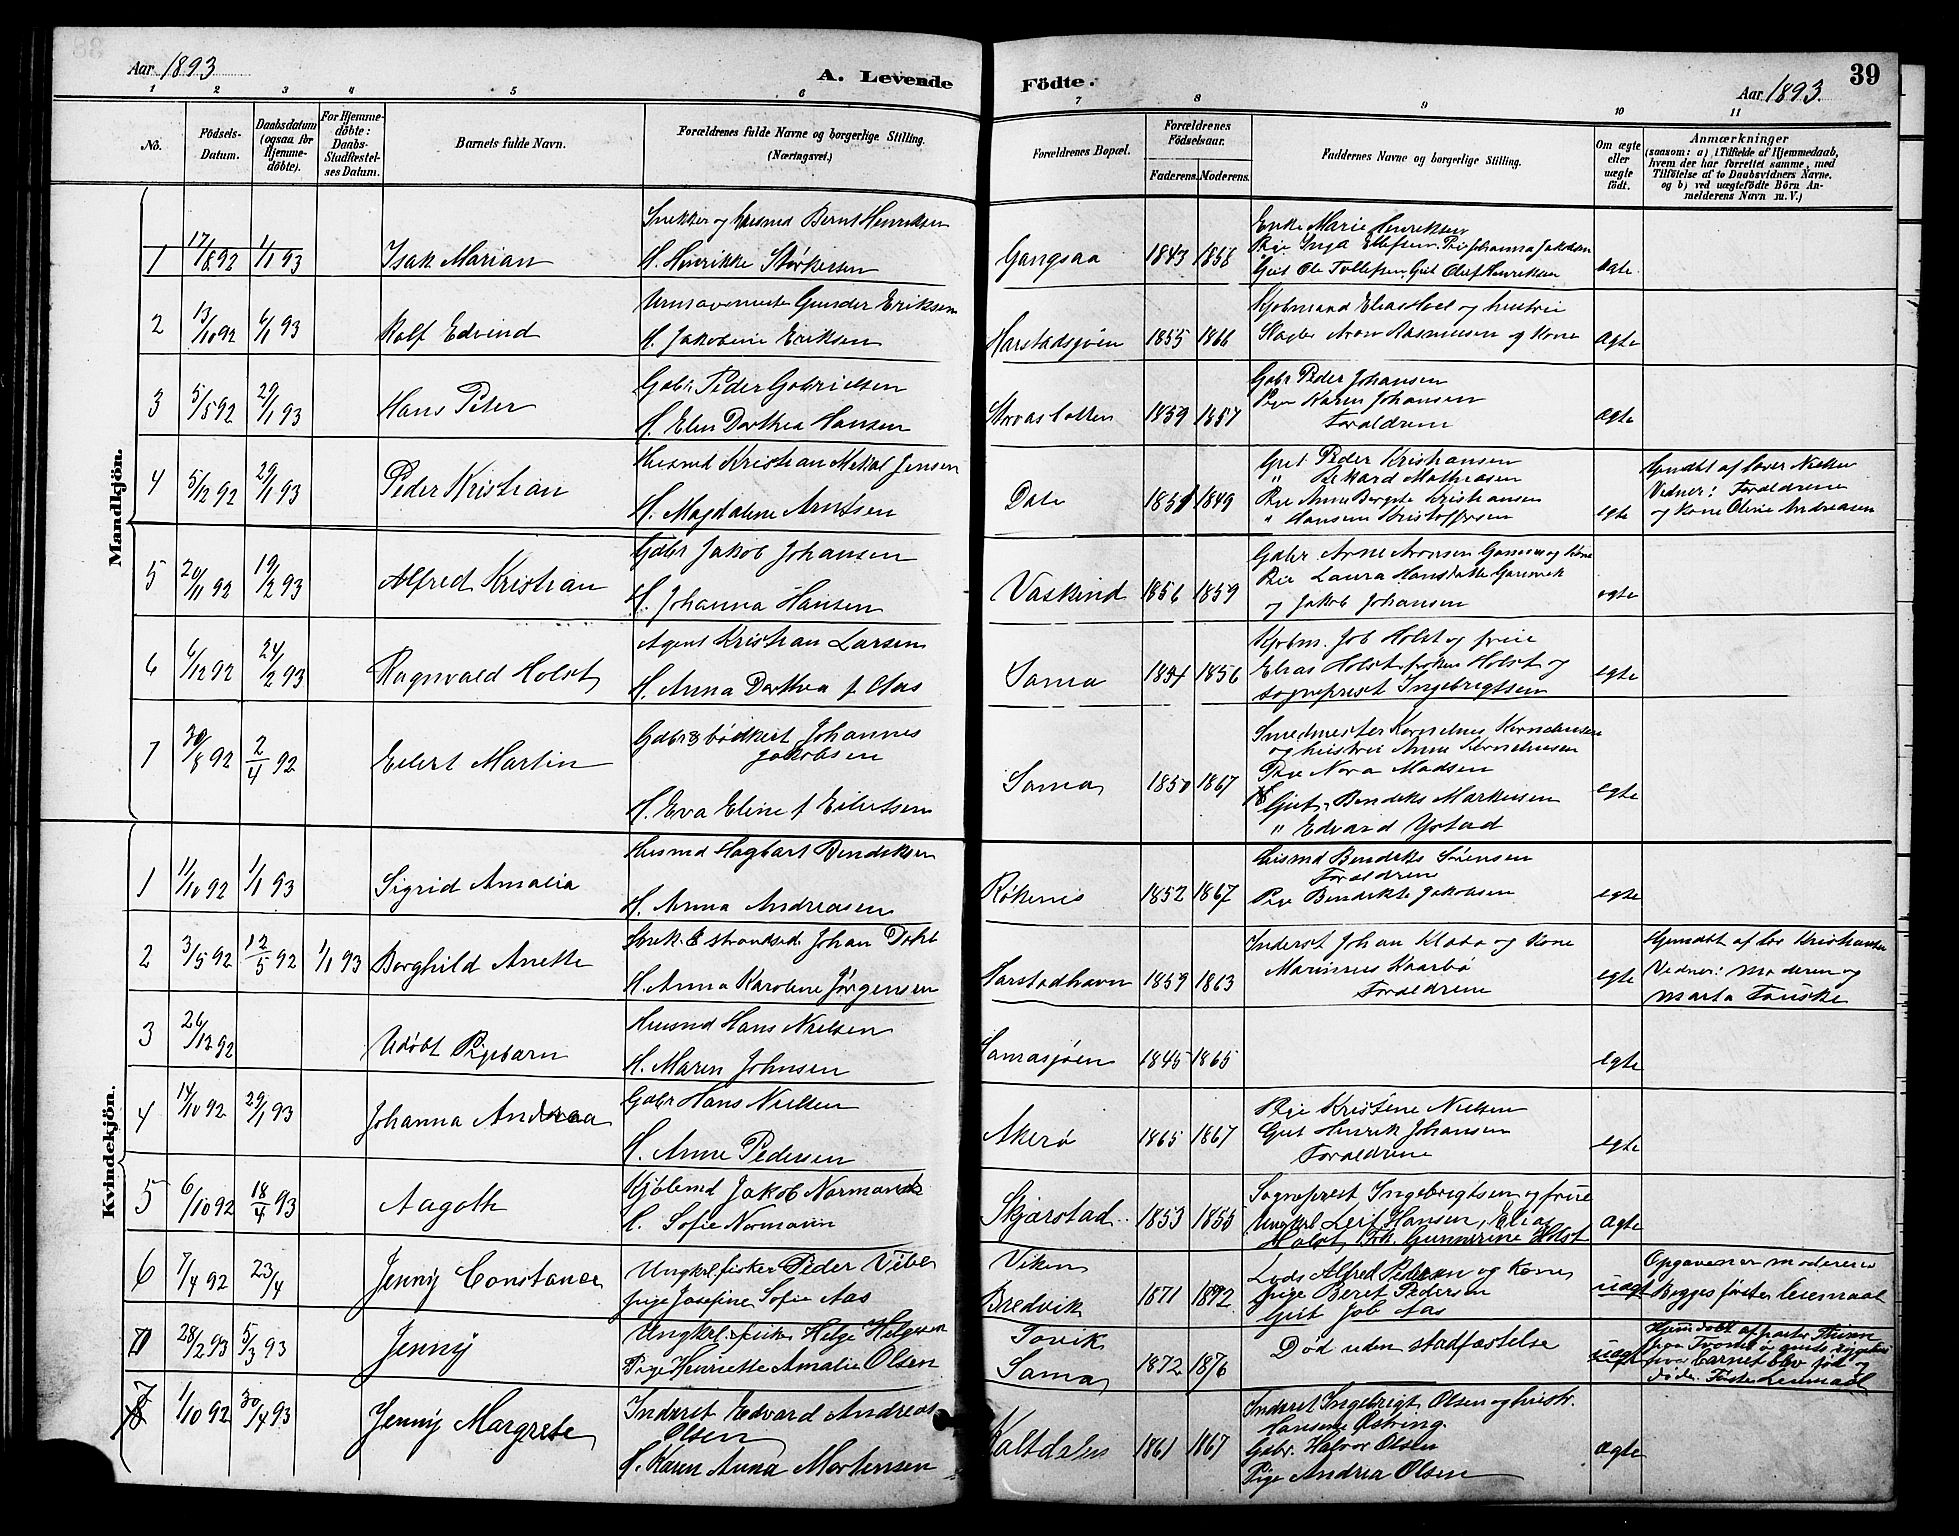 Aar 1893
A. Levende Födte.
Aar 1893.
39
1 2 3 4 5 6 7 8 9 10 11
No.
Födsels-Datum.
Daabsdatum (ogsaa for Hjemme-döbte).
For Hjemme-döbte: Daabs-Stadfæstel-ses Datum.
Barnets fulde Navn.
Forældrenes fulde Navne og borgerlige Stilling. (Næringsvei.)
Forældrenes Bopæl.
Forældrenes Födselsaar.
Faderens. Moderens.
Faddernes Navne og borgerlige Stilling.
Om ægte eller uægte födt.
Anmærkninger
(saasom: a) i Tilfælde af Hjemmedaab, hvem der har forrettet samme, med Tilföielse af to Daabsvidners Navne. og b) ved uægtefödte Börn An-melderens Navn m. V.)
Mandkjön.
1 17/8 92 1/1 93 Isak Marian
Snekker og Husmd Bernt Henriksen
H. Henrikke Størkersen
Gangsaa 1843 1858
Enke Marie Henriksen
Pige Inga Ellefsen Pig Johanna Jakobsen
Gut Ole Tollefsen Gut Olaf Henriksen
ægte
2 13/10 92 6/1 93 Rolf Edvind
Gunder Eriksen
H. Jakobine Eriksen
Harstadsjøen 1855 1866
Kjøbmand Elias Hoel og hustrue
Aron Rasmussen og Kone
ægte
3 5/5 92 29/1 93 Hans Peter
Gabr Peder Gabrielsen
H. Elen Dorthea Hansen
Storvasbotten 1859 1857
Gabr Peder Johansen
Pige Karen Johansen
Forældrene
ægte
4 5/12 92 29/1 93 Peder Kristian
Husmd Kristian Mekal Jensen
H. Magdalene Arntsen
Dale 1851 1849
Gut Peder Kristiansen
" Rikard Mathiasen
Pie Anne Bergete Kristiansen
" Hansine Kristoffersen
egte
Hjmdøbt af Lærer Nielsen
Vidner: Forældrene
og Kone Oline Andreasen
5 20/11 92 19/2 93 Alfred Kristian
Gdbr Jakob Johansen
H. Johanna Hansen
Vaskind 1856 1859
Gdbr Arne Aronsen og Kone
Pige Laura Hansdatter
og Jakob Johansen
egte
6 6/12 92 24/2 93 Ragnvald Holst
Agent Kristian Larsen
H. Anna Dorthea f. Aas
Sama 1854 1856
Kjøbm. Job Holst og frue
Elias Holst frøken Holst og
sogneprest Ingebrigtsen
egte
7 30/8 92 2/4 92 Eilert Martin
Gdbr & bødker Johannes
Jakobsen
H. Eva Eline f Eilertsen
Sama 1850 1867
Smedmester Kornelius Korneliusen
og hustrue Anne Korneliusen
Pige Nora Madsen
Gut Bendiks Markussen
" Edvard Ystad
egte
Kvindekjön.
1 11/10 92 1/1 93 Sigrid Amalia
Husmd Hagbart Bendiksen
H. Anna Andreasen
Røkenes 1852 1867
Husmd Bendiks Sørensen
Forældrene
Pige Bendikte Jakobsen
egte
2 3/5 92 12/5 92 1/1 93 Borghild Anette
Snek. & strandsid. Johan Dahl
H. Anna Karoline Jørgensen
Harstadhavn 1859 1863
Inderst Johan Klabo og Kone
Marinius Kaarbø
Forældrene
egte
Hjemdøbt af Kristiansen
Vidner: Moderen og
Marta Fauske
3 26/12 92 Udøbt Pigebarn
Husmd Hans Nielsen
H. Maren Johnsen
Samasjøen 1845 1865
egte
4 14/10 92 29/1 93 Johanna Andrea
Gdbr Hans Nielsen
H. Anne Pedersen
Akerø 1865 1867
Pige Kristine Nielsen
Gut Henrik Johansen
Forældrene
egte
5 6/10 92 18/4 93 Aagoth
Kjøbmd Jakob Normann
H. Sofie Normann
Skjærstad 1853 1855
Sogneprest Ingebrigtsen og frue
Ungkrl Leif Hansen, Elias
Holst, Frk. Gunnerine Holst
ægte
6 7/4 92 23/4 Jenny Constance
Ungkrl. fisker Peder Vibe
pige Josefine Sofie Aas
Viken
Bredvik
1871 1872
Lods Alfred Pedersen og Kone
pige Beret Pedersen
Gut Job Aas
uægt
Opgaven er moderens
Begges første leiermaal
28/2 93 5/3 93 Jenny
Ungkrl. fisker Helge Helgesen
Pige Henriette Amalie Olsen
Sørvik
Sama
1872 1876
Død uden stadfæstelse
uægt
barnet blev født og
døde. Første Leiermaal
7 1/10 92 30/4 93 Jenny Margrete
Inderst Edvard Andreas
Olsen
H. Karen Anna Mortensen
Kaltdalen 1861 1867
Inderst Ingebrigt Olsen og hustr.
Hansine Østring
Gdbr. Halvor Olsen
Pige Andrea Olsen
ægte